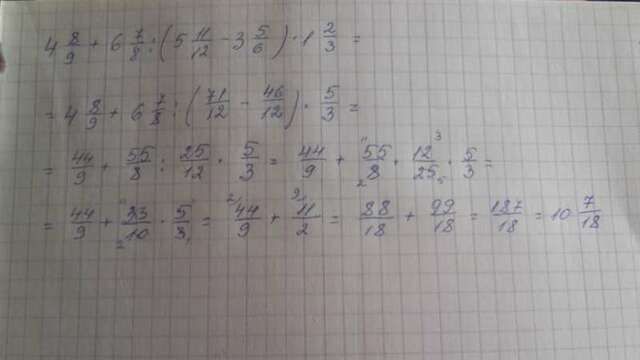 4 8/9 + 6 7/8 : (5 11/12 - 3 5/6) · 1 2/3 =
= 4 8/9 + 6 7/8 : (71/12 - 46/12) · 5/3 =
= 44/9 + 55/8 : 25/12 · 5/3 = 44/9 + 55/8 · 12/25 · 5/3 =
= 44/9 + 33/10 · 5/3 = 44/9 + 11/2 = 88/18 + 99/18 = 187/18 = 10 7/18